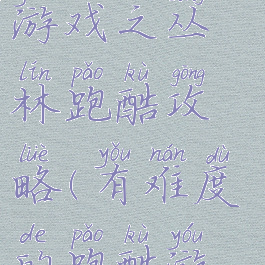 游戏之丛
lín pǎo kù gōng
林跑酷攻
lüè yǒu nán dù
略(有难度
de pǎo kù yóu
的跑酷游